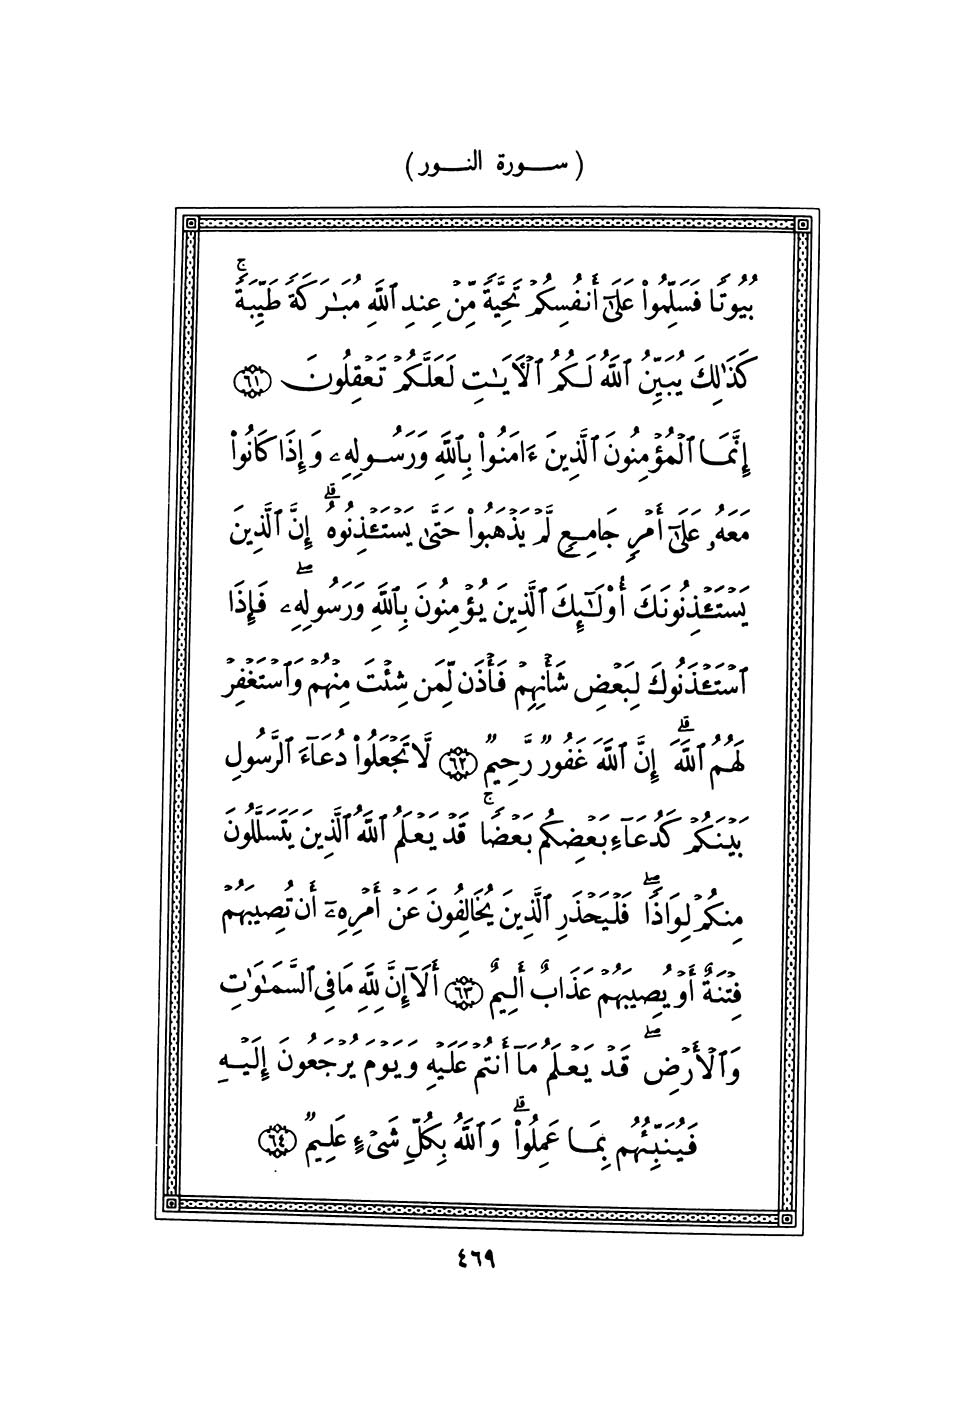 ( ســورة النــور )
بُيُوتًا فَسَلِّمُوا۟ عَلَىٰٓ أَنفُسِكُمْ تَحِيَّةً مِّنْ عِندِ ٱللَّهِ مُبَٰرَكَةً طَيِّبَةً ۚ
كَذَٰلِكَ يُبَيِّنُ ٱللَّهُ لَكُمُ ٱلْأَيَٰتِ لَعَلَّكُمْ تَعْقِلُونَ ٦١
إِنَّمَا ٱلْمُؤْمِنُونَ ٱلَّذِينَ ءَامَنُوا۟ بِٱللَّهِ وَرَسُولِهِۦ وَإِذَا كَانُوا۟
مَعَهُۥ عَلَىٰٓ أَمْرٍ جَامِعٍ لَّمْ يَذْهَبُوا۟ حَتَّىٰ يَسْتَـْٔذِنُوهُ ۚ إِنَّ ٱلَّذِينَ
يَسْتَـْٔذِنُونَكَ أُو۟لَٰٓئِكَ ٱلَّذِينَ يُؤْمِنُونَ بِٱللَّهِ وَرَسُولِهِۦ ۖ فَإِذَا
ٱسْتَـْٔذَنُوكَ لِبَعْضِ شَأْنِهِمْ فَأْذَن لِّمَن شِئْتَ مِنْهُمْ وَٱسْتَغْفِرْ
لَهُمُ ٱللَّهَ ۗ إِنَّ ٱللَّهَ غَفُورٌ رَّحِيمٌ ٦٢ لَّا تَجْعَلُوا۟ دُعَآءَ ٱلرَّسُولِ
بَيْنَكُمْ كَدُعَآءِ بَعْضِكُم بَعْضًا ۚ قَدْ يَعْلَمُ ٱللَّهُ ٱلَّذِينَ يَتَسَلَّلُونَ
مِنكُمْ لِوَاذًا ۖ فَلْيَحْذَرِ ٱلَّذِينَ يُخَالِفُونَ عَنْ أَمْرِهِۦٓ أَن تُصِيبَهُمْ
فِتْنَةٌ أَوْ يُصِيبَهُمْ عَذَابٌ أَلِيمٌ ٦٣ أَلَآ إِنَّ لِلَّهِ مَا فِى ٱلسَّمَٰوَٰتِ
وَٱلْأَرْضِ ۖ قَدْ يَعْلَمُ مَآ أَنتُمْ عَلَيْهِ وَيَوْمَ يُرْجَعُونَ إِلَيْهِ
فَيُنَبِّئُهُم بِمَا عَمِلُوا۟ ۗ وَٱللَّهُ بِكُلِّ شَىْءٍ عَلِيمٌ ٦٤
٤٦٩